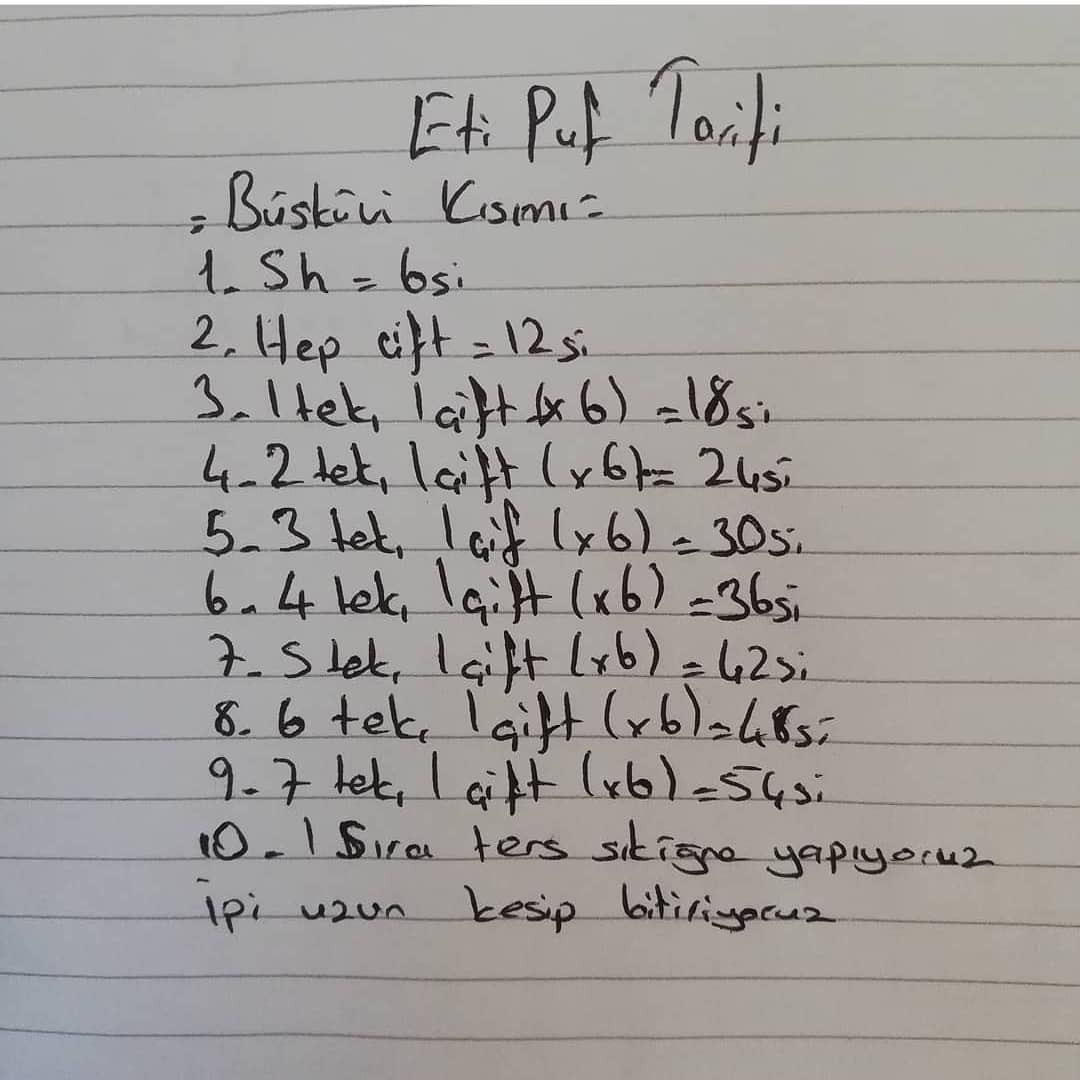 Eti Puf Tarifi
= Büsküvi Kısmı =
1. Sh = 6si
2. Hep çift = 12 si
3. 1 tek, 1 çift (x 6) = 18 si
4. 2 tek, 1 çift (x 6) = 24 si
5. 3 tek, 1 çif (x 6) = 30 si
6. 4 tek, 1 çift (x 6) = 36 si
7. 5 tek, 1 çift (x 6) = 42 si
8. 6 tek, 1 çift (x 6) = 48 si
9. 7 tek, 1 çift (x 6) = 54 si
10. 1 Sıra ters sıkiğne yapıyoruz
ipi uzun kesip bitiriyoruz